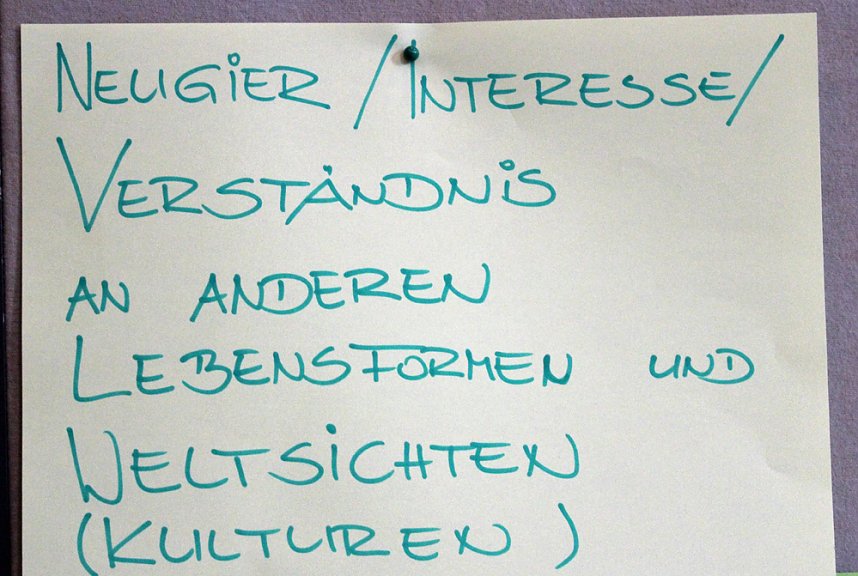 NEUGIER / INTERESSE /
VERSTÄNDNIS
AN ANDEREN
LEBENSFORMEN UND
WELTSICHTEN
(KULTUREN )